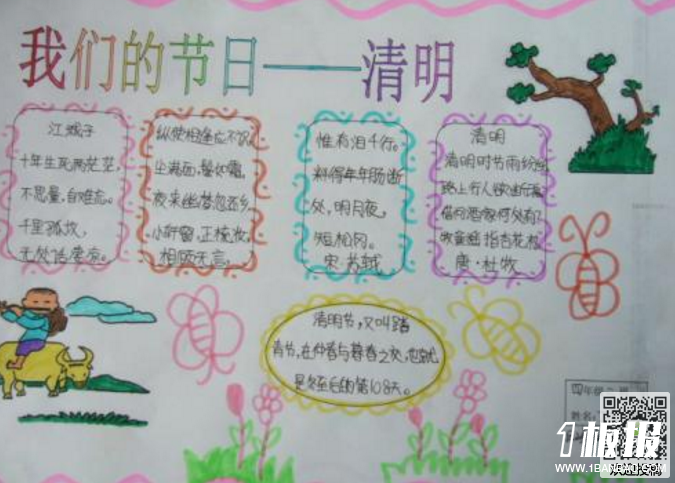 我们的节日——清明
江城子
十年生死两茫茫，
不思量，自难忘。
千里孤坟，
无处话凄凉。
纵使相逢应不识，
尘满面，鬓如霜。
夜来幽梦忽还乡，
小轩窗，正梳妆，
相顾无言，
惟有泪千行。
料得年年肠断
处，明月夜，
短松冈。
宋·苏轼
清明
清明时节雨纷纷
路上行人欲断魂
借问酒家何处有
牧童遥指杏花村
唐·杜牧
清明节，又叫踏
青节，在仲春与暮春之交，也就
是冬至后的第108天。
四年级
姓名：
1板报
WWW.1BANBAO.COM
欢迎投稿